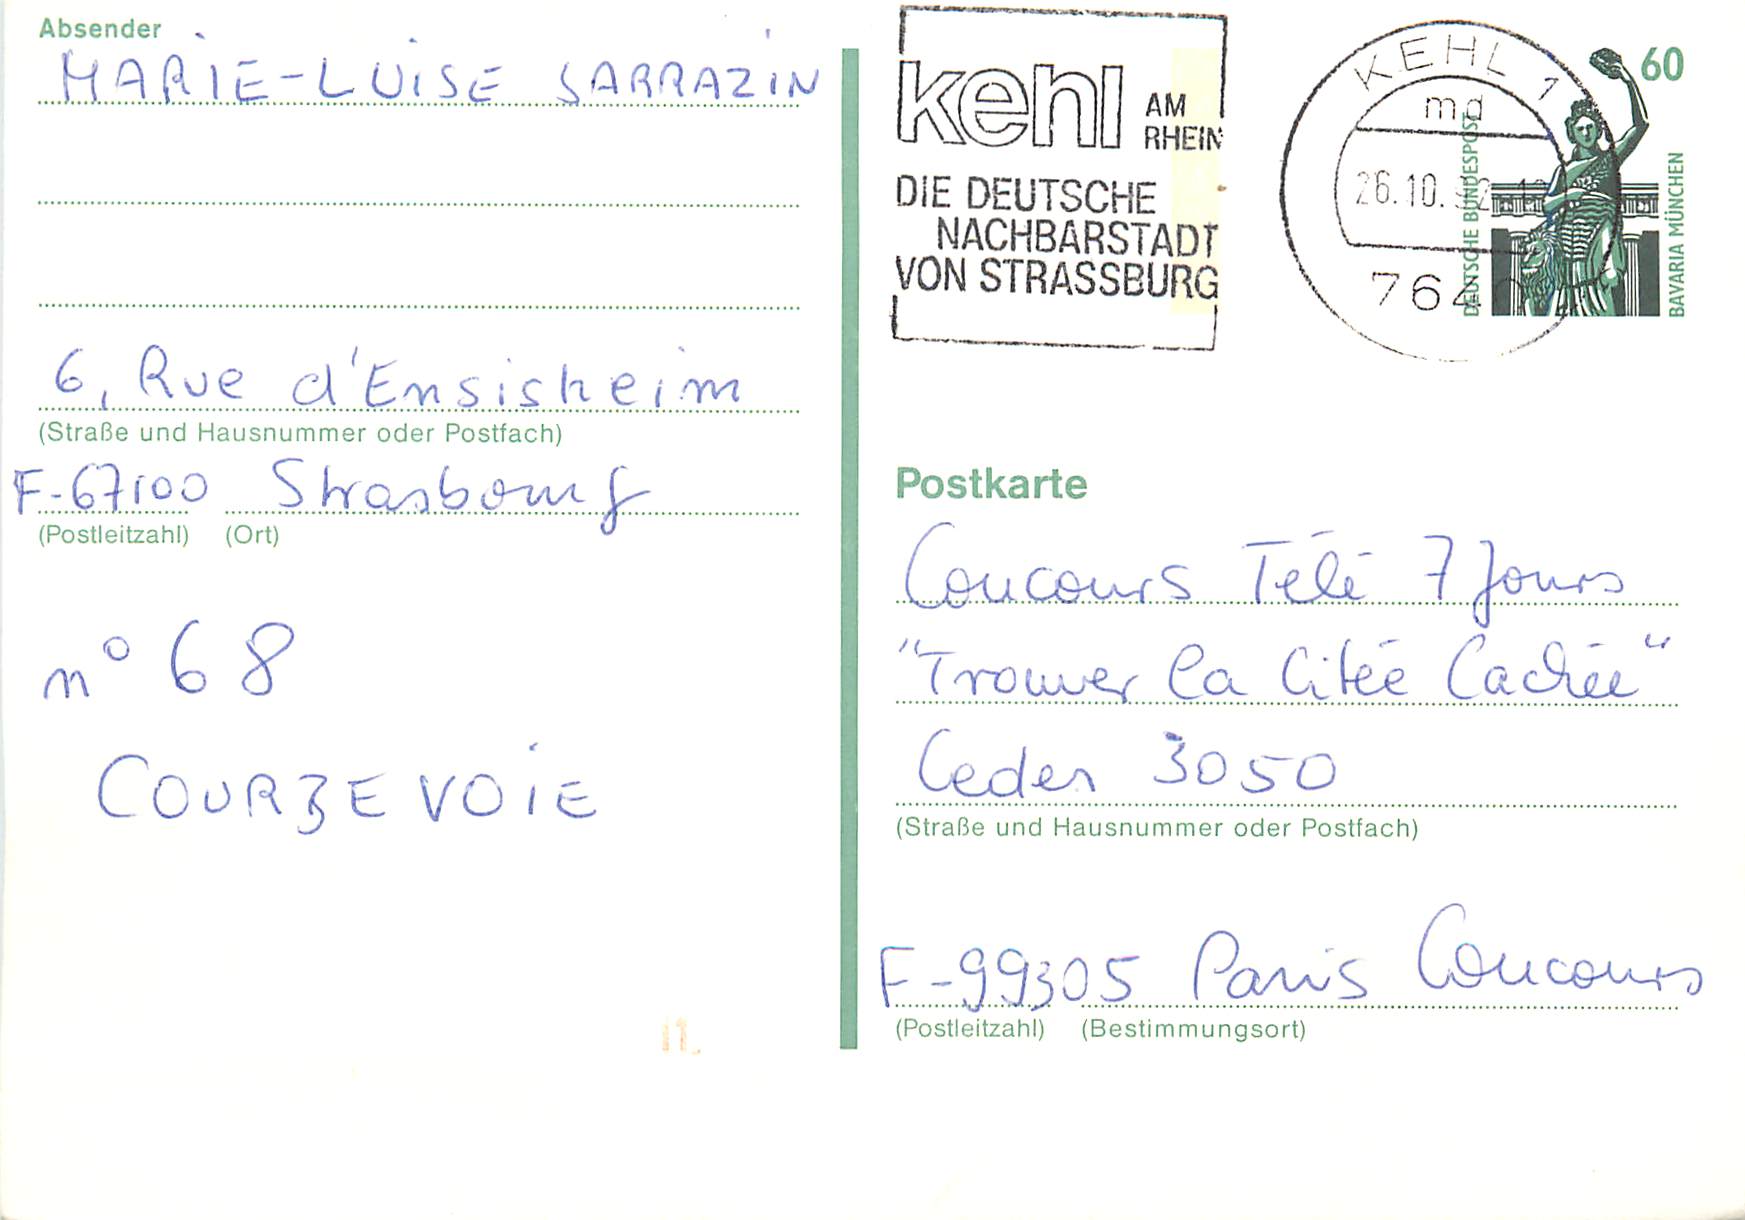 Absender
MARIE-LUISE SARRAZIN
6, Rue d'Ensisheim
(Straße und Hausnummer oder Postfach)
F-67100 Strasbourg
(Postleitzahl) (Ort)
n° 68
COURBEVOIE
kehl AM
RHEIN
DIE DEUTSCHE
NACHBARSTADT
VON STRASSBURG
KEHL 1
md
26.10.92
7640
60
DEUTSCHE BUNDESPOST
BAVARIA MÜNCHEN
Postkarte
Concours Télé 7 Jours
"Trouver la Citée Cachée"
Cedex 3050
(Straße und Hausnummer oder Postfach)
F-99305 Paris Concours
(Postleitzahl) (Bestimmungsort)